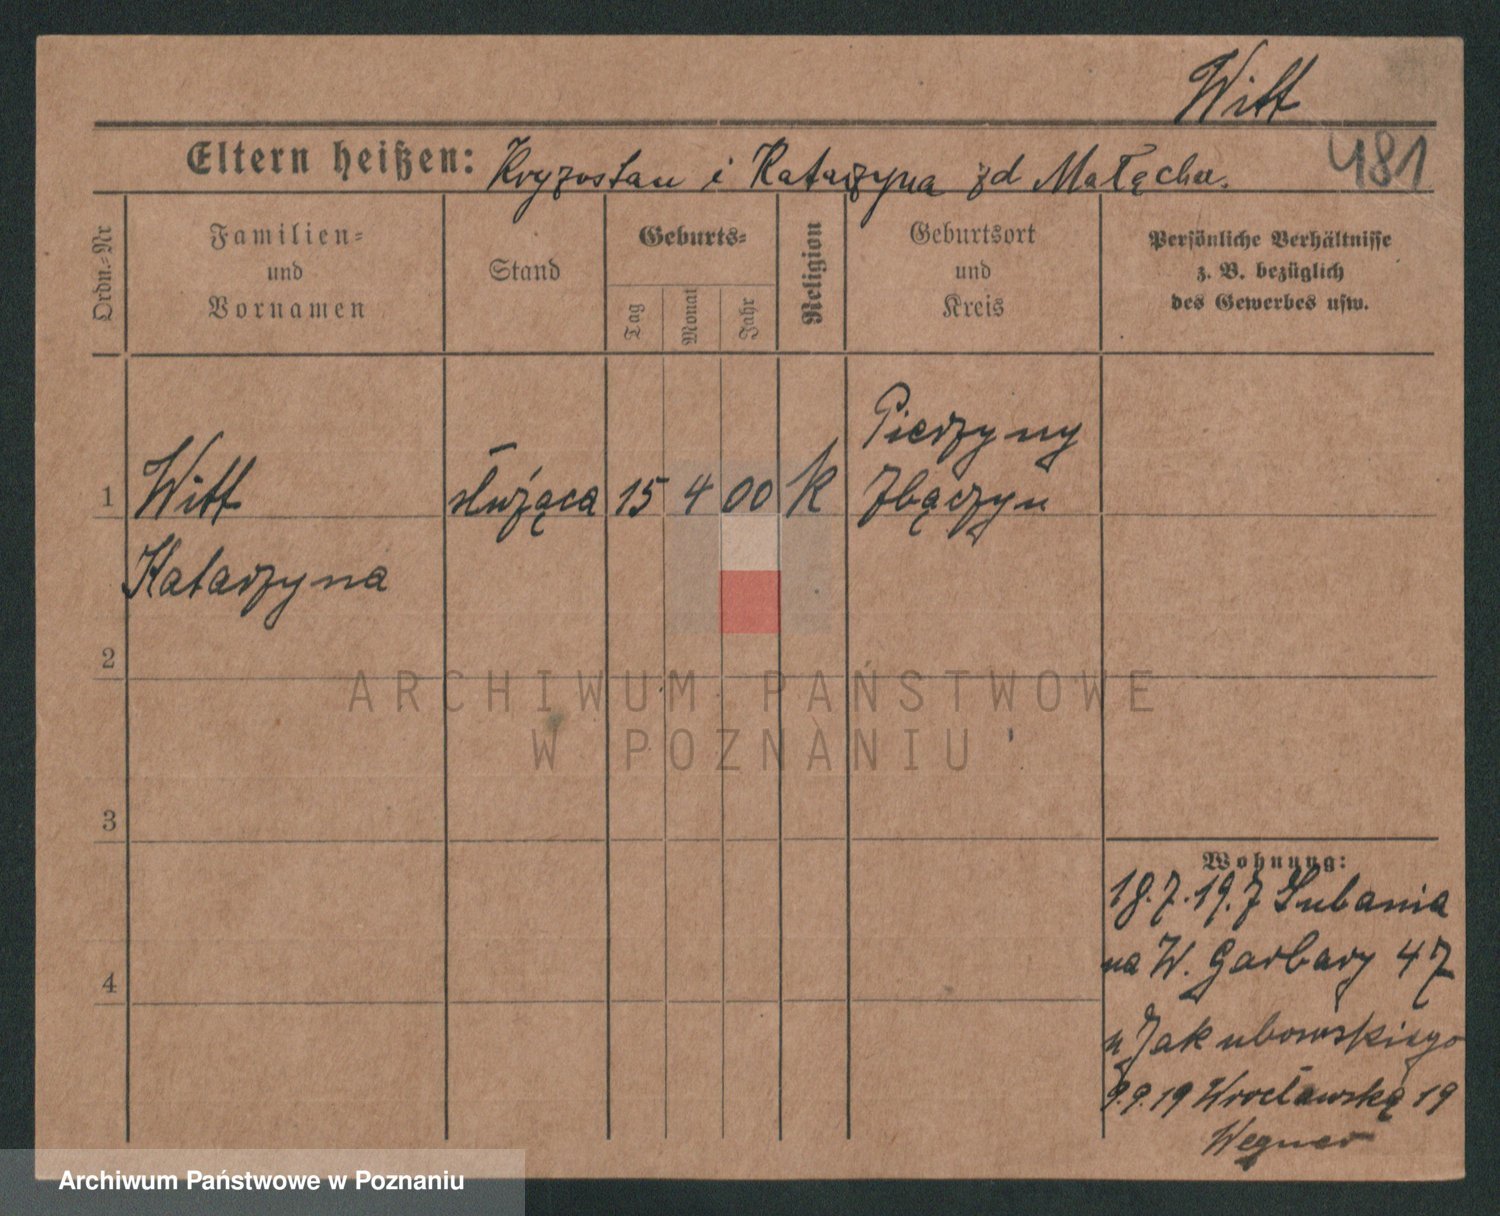 Witt
481
Eltern heißen: Kryzostan i Katarzyna zd Małęcka.
Ordn.-Nr
Familien-
und
Vornamen
Stand
Geburts-
Tag
Monat
Jahr
Religion
Geburtsort
und
Kreis
Persönliche Verhältnisse
z. B. bezüglich
des Gewerbes usw.
Pierzyny
1 Witt służąca 15 4 00 K Zbączyn
Katarzyna
2
ARCHIWUM PAŃSTWOWE
W POZNANIU
3
Wohnung:
18.7.19. z Lubania
4
na W. Garbary 47
u Jakubowskiego
9.9.19 Wrocławska 19
Wegner
Archiwum Państwowe w Poznaniu